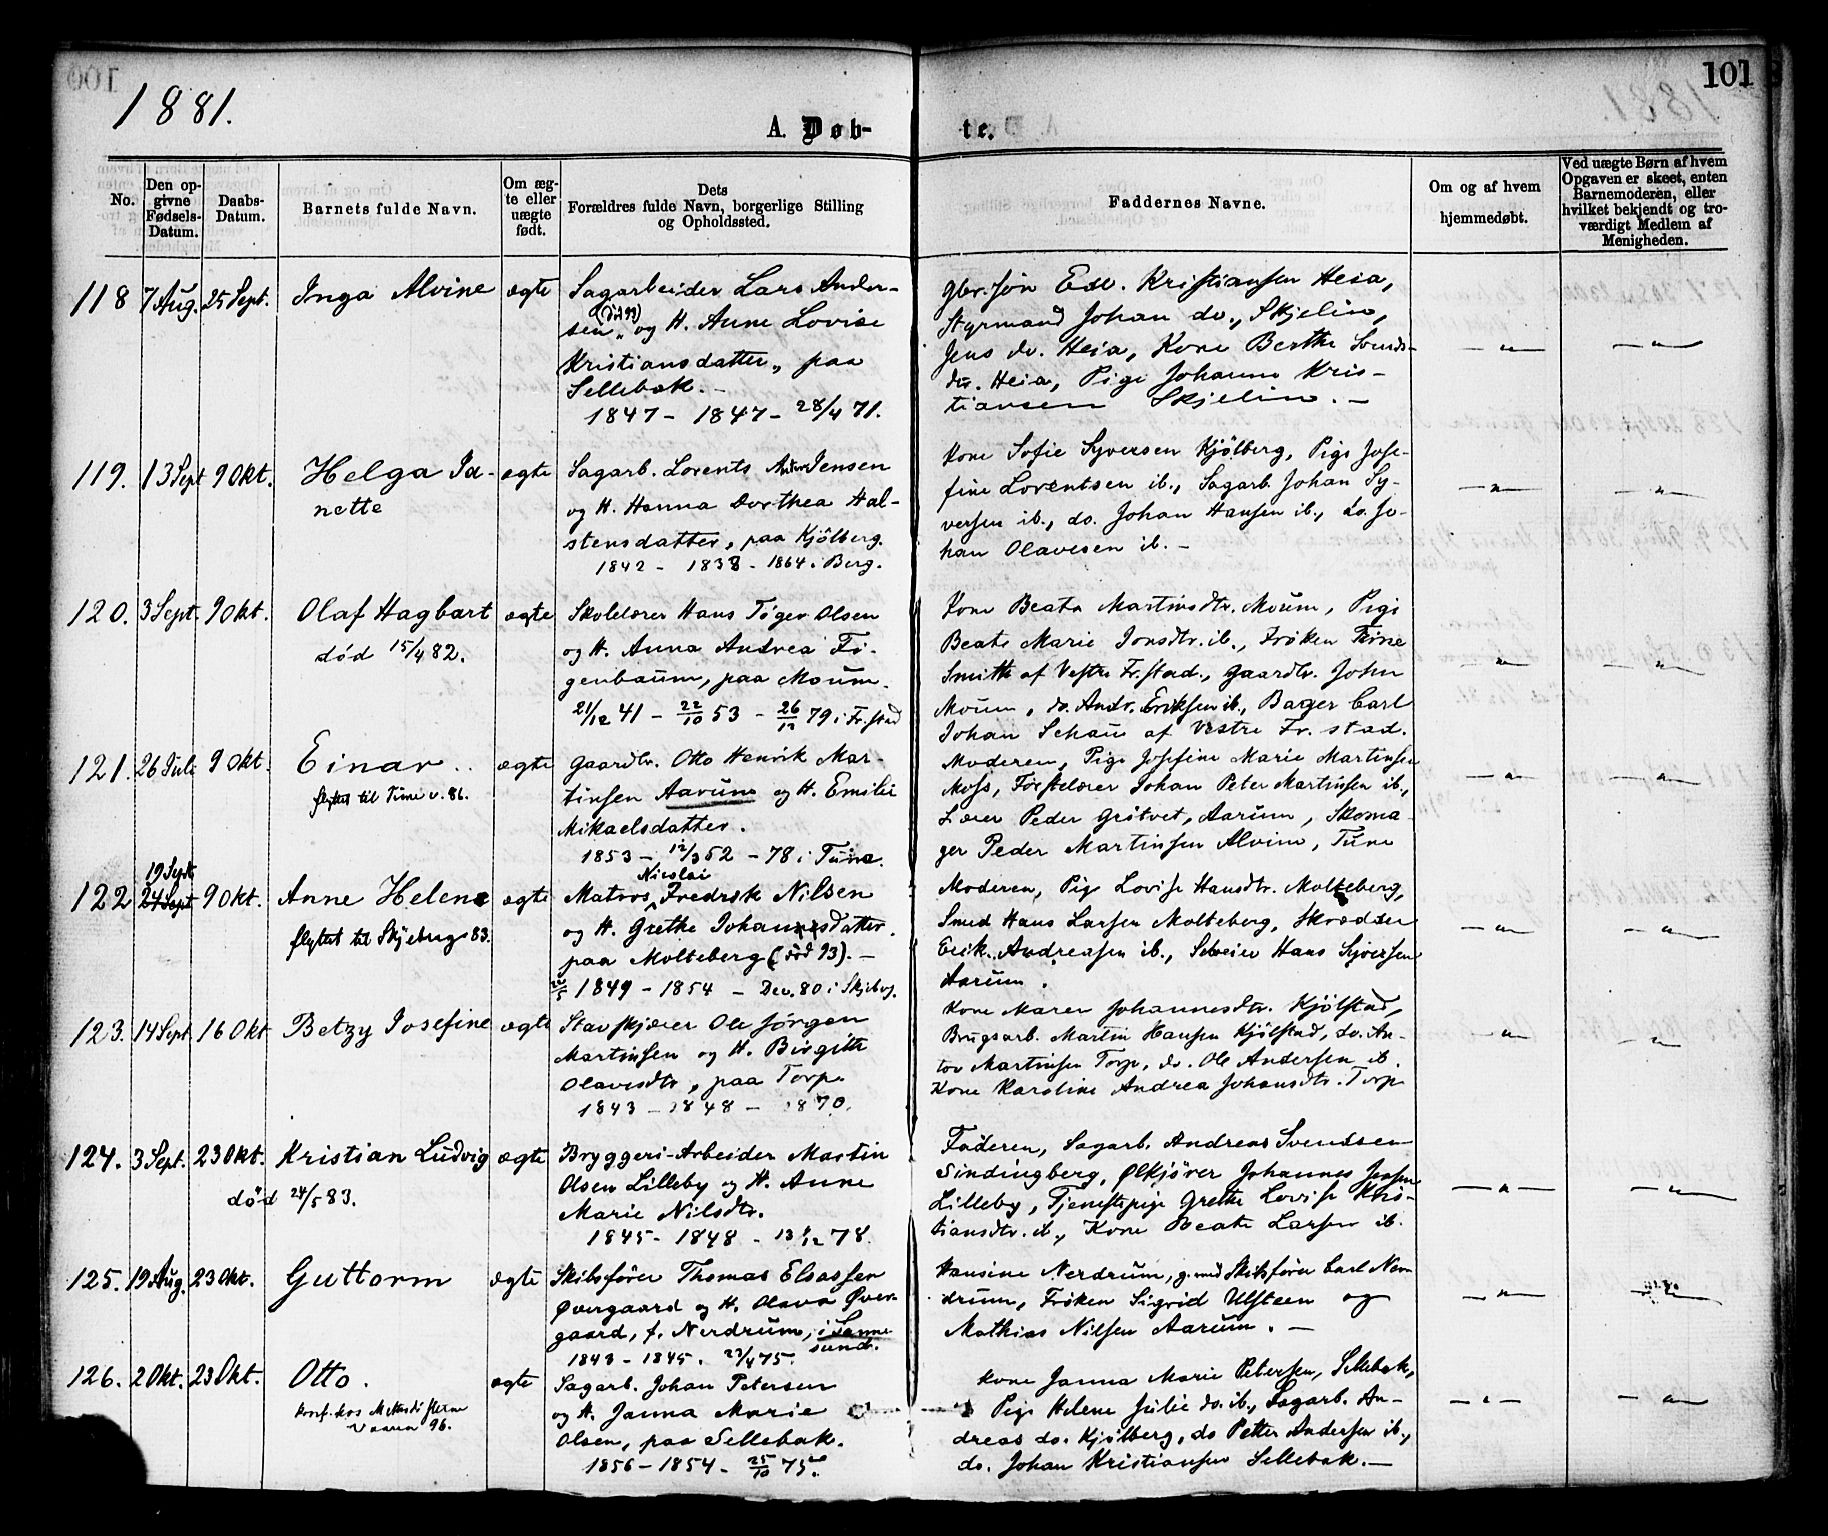 1881.
101
A. Døb-
te.
No.
Den op-
givne
Fødsels-
Datum.
Daabs-
Datum.
Barnets fulde Navn.
Om æg-
te eller
uægte
født.
Dets
Forældres fulde Navn, borgerlige Stilling
og Opholdssted.
Faddernes Navne.
Om og af hvem
hjemmedøbt.
Ved uægte Børn af hvem
Opgaven er skeet, enten
Barnemoderen, eller
hvilket bekjendt og tro-
værdigt Medlem af
Menigheden.
118 7 Aug. 25 Sept. Inga Alvine ægte
Sagarbeider Lars Ander-
sen, og H. Anne Lovise
Kristiansdatter, paa
Sellebak. -
1847 - 1847 - 28/4 71.
gbr.søn Edv. Kristiansen Heia,
Styrmand Johan do., Skjelin,
Jens do. Heia, Kone Berthe Svends-
dtr. Heia, Pige Johanne Kris-
tiansen Skjelin. -
119. 13 Sept 9 Okt. Helga Ja-
nette
ægte
Sagarb. Lorents Jensen
og H. Hanna Dorthea Hal-
stensdatter, paa Kjölberg.
1842 - 1838 - 1864. Berg.
Kone Sofie Syversen Kjölberg, Pige Jose-
fine Lorentsen ib., Sagarb. Johan Sy-
versen ib., do. Johan Hansen ib., do. Jo-
han Olavesen ib. -
120. 3 Sept. 9 Okt. Olaf Hagbart
død 15/4 82.
ægte
Skolelærer Hans Töger Olsen
og H. Anna Andrea Fö-
genbaum, paa Moum.
21/12 41 - 22/10 53 - 26/12 79 i Fr.stad
Kone Beata Martinsdtr. Moum, Pige
Beate Marie Jonsdtr. ib., Fröken Trine
Smith af Vestre Fr.stad., gaardbr. John
Moum, do. Andr. Eriksen ib., Bager Carl
Johan Schau af Vestre Fr.stad.
121. 26 Juli 9 Okt. Einar
flyttet til Tune v. 86.
ægte
gaardbr. Otto Henrik Mar-
tinsen Aarum og H. Emilie
Mikaelsdatter.
1853 - 12/3 52 - 78 i Tune.
Moderen, Pige Josefine Marie Martinsen
Moss, Forstelærer Johan Peter Martinsen ib.,
Lærer Peder Grötvet, Aarum, Skoma-
ger Peder Martinsen Alvim, Tune
19 Sept
122 24 Sept 9 Okt. Anne Helene
flyttet til Skjeberg 83.
ægte
Nicolai
Matros Fredrik Nilsen
og H. Grethe Johannesdatter.
paa Molteberg (död 93). -
1849 - 1854 - Dec. 80 i Skjeberg.
Moderen, Pige Lovise Hansdtr. Molteberg,
Smed Hans Larsen Molteberg, Skrædder
Erik Andreasen ib., Hans Syversen
Aarum.
123. 14 Sept 16 Okt Betzy Josefine ægte
Stavskjærer Ole Jörgen
Martinsen og H. Birgitte
Olavesdtr, paa Torp.
1843 - 1848 - 1870.
Kone Maren Johannesdtr. Kjölstad,
Brugsarb. Martin Hansen Kjölstad, do. An-
ton Martinsen Torp, do. Ole Andersen ib.
Kone Karoline Andrea Johansdtr. Torp
124. 3 Sept. 23 Okt. Kristian Ludvig
död 24/5 83.
ægte
Bryggeri-Arbeider Martin
Olsen Lilleby og H. Anne
Marie Nilsdtr.
1845 - 1848 - 78.
Faderen, Sagarb. Andreas Svendsen
Sindingberg, Ølkjörer Johannes Jensen
Lilleby, Tjenestepige Grethe Lovise Kris-
tiansdtr. ib., Kone Beate Larsen ib.
125. 19 Aug. 23 Okt. Guttorm ægte
Skibsförer Thomas Eliassen
Øvergaard og H. Olava Øver-
gaard, f. Nerdrum, i Sanne-
sund.
1843 - 1845. 23/4 75.
Hansine Nerdrum, g. med Skibsförer Carl Ner-
drum, Fröken Sigrid Ulsteen og
Mathias Nilsen Aarum. -
126. 2 Okt. 23 Okt. Otto.
ægte
Sagarb. Johan Petersen
og H. Janna Marie
Olsen, paa Sellebak.
1856 - 1854 - 25/10 75
Kone Janna Marie Petersen, Sellebak,
Pige Helene Julie do. ib., Sagarb. An-
dreas do. Kjölberg, do Petter Andersen ib.,
do. Johan Kristiansen Sellebak. -